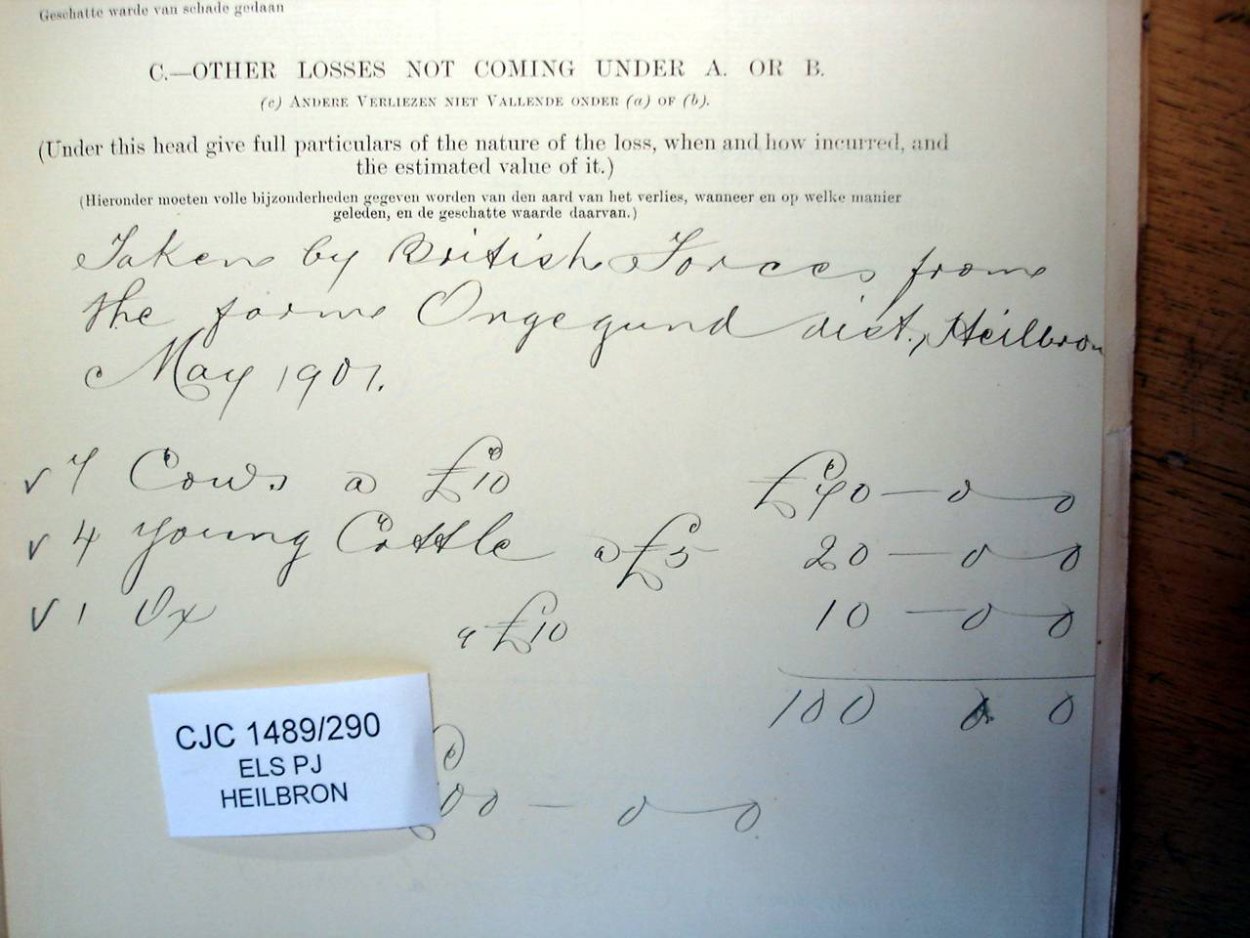 Geschatte warde van schade gedaan
C.—OTHER LOSSES NOT COMING UNDER A. OR B.
(c) ANDERE VERLIEZEN NIET VALLENDE ONDER (a) OF (b).
(Under this head give full particulars of the nature of the loss, when and how incurred, and
the estimated value of it.)
(Hieronder moeten volle bijzonderheden gegeven worden van den aard van het verlies, wanneer en op welke manier
geleden, en de geschatte waarde daarvan.)
Taken by British Forces from
the farm Ongegund dist., Heilbron
May 1901.
√ 7 Cows a £10 £70—0—0
√ 4 young Cattle a £5 20—0—0
√ 1 Ox a £10 10—0—0
100 0 0
00—0—0
CJC 1489/290
ELS PJ
HEILBRON